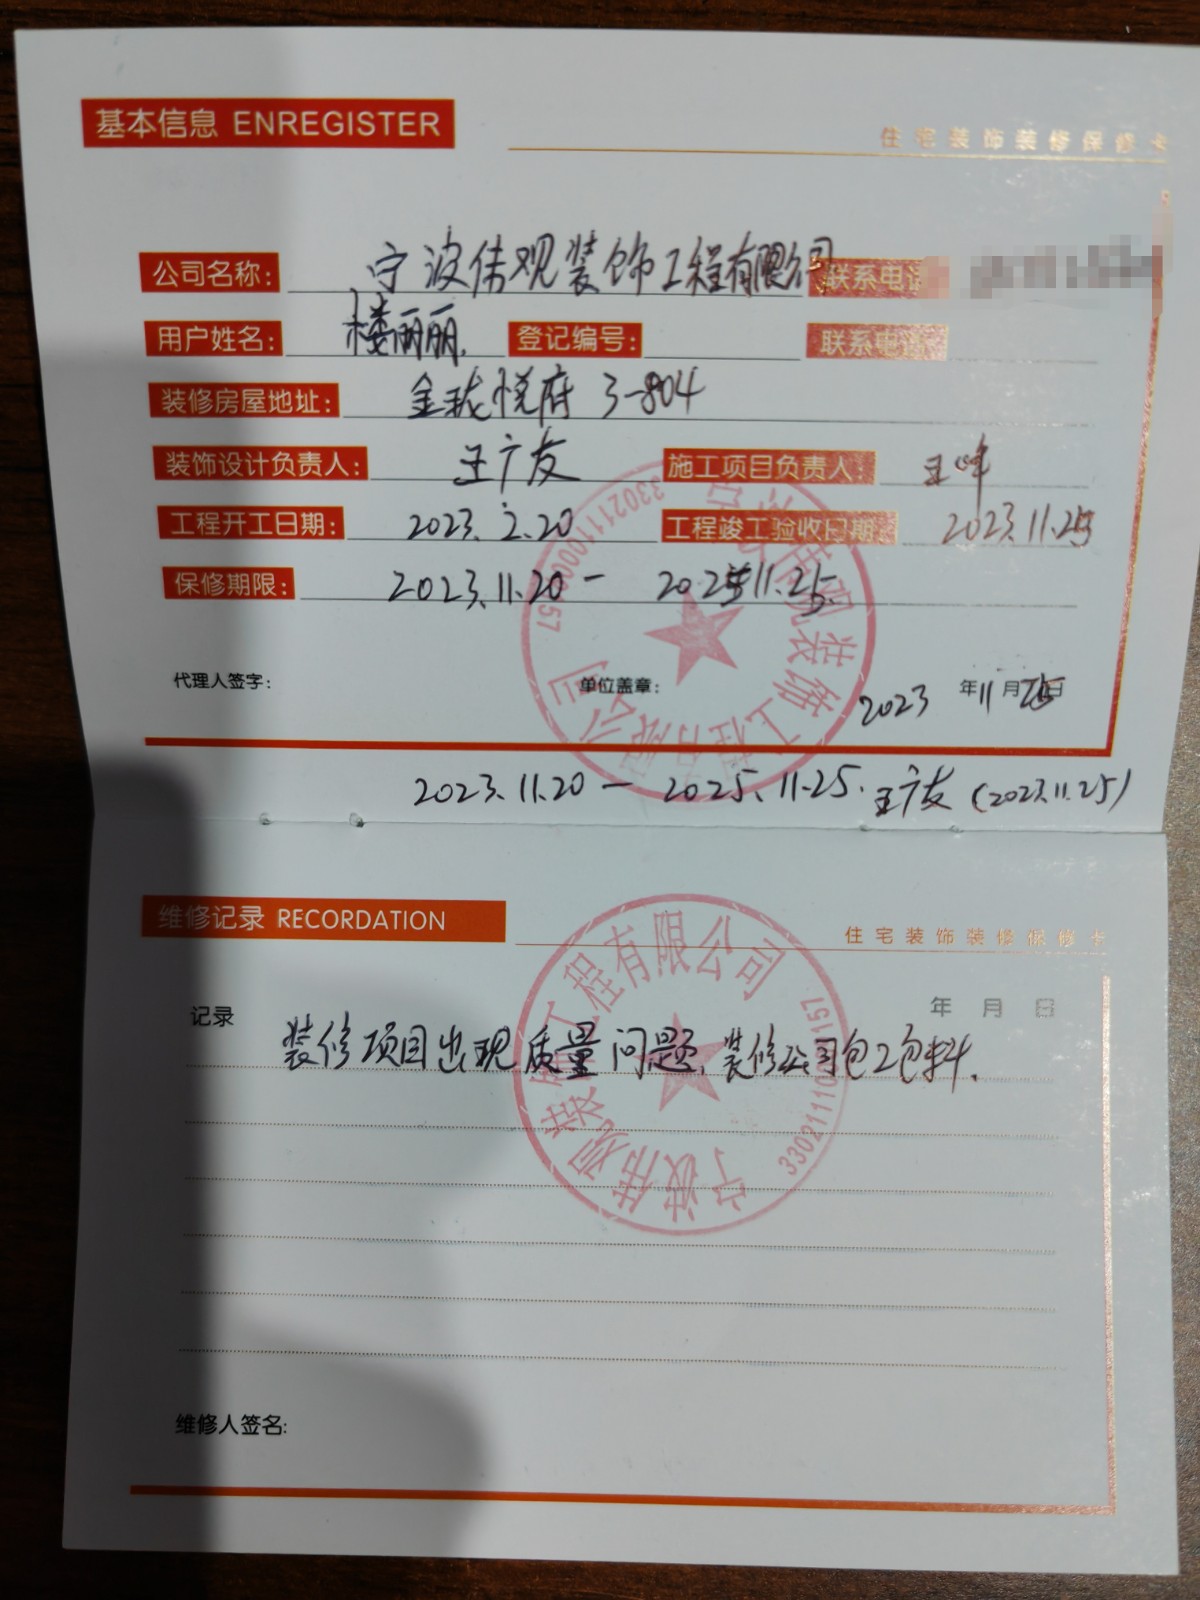 基本信息 ENREGISTER
住宅装饰装修保修卡
公司名称： 宁波伟观装饰工程有限公司 联系电话
用户姓名： 楼丽丽 登记编号： 联系电话
装修房屋地址： 金珑悦府 3-804
装饰设计负责人： 王广友 施工项目负责人： 王峰
工程开工日期： 2023.2.20 工程竣工验收日期： 2023.11.25
保修期限： 2023.11.20 — 2025.11.25.
代理人签字： 单位盖章： 2023 年 11 月 25 日
宁波伟观装饰工程有限公司
2023.11.20 — 2025.11.25. 王广友 (2023.11.25)
维修记录 RECORDATION
住宅装饰装修保修卡
记录 年 月 日
装修项目出现质量问题，装修公司包工包料.
宁波伟观装饰工程有限公司
维修人签名：